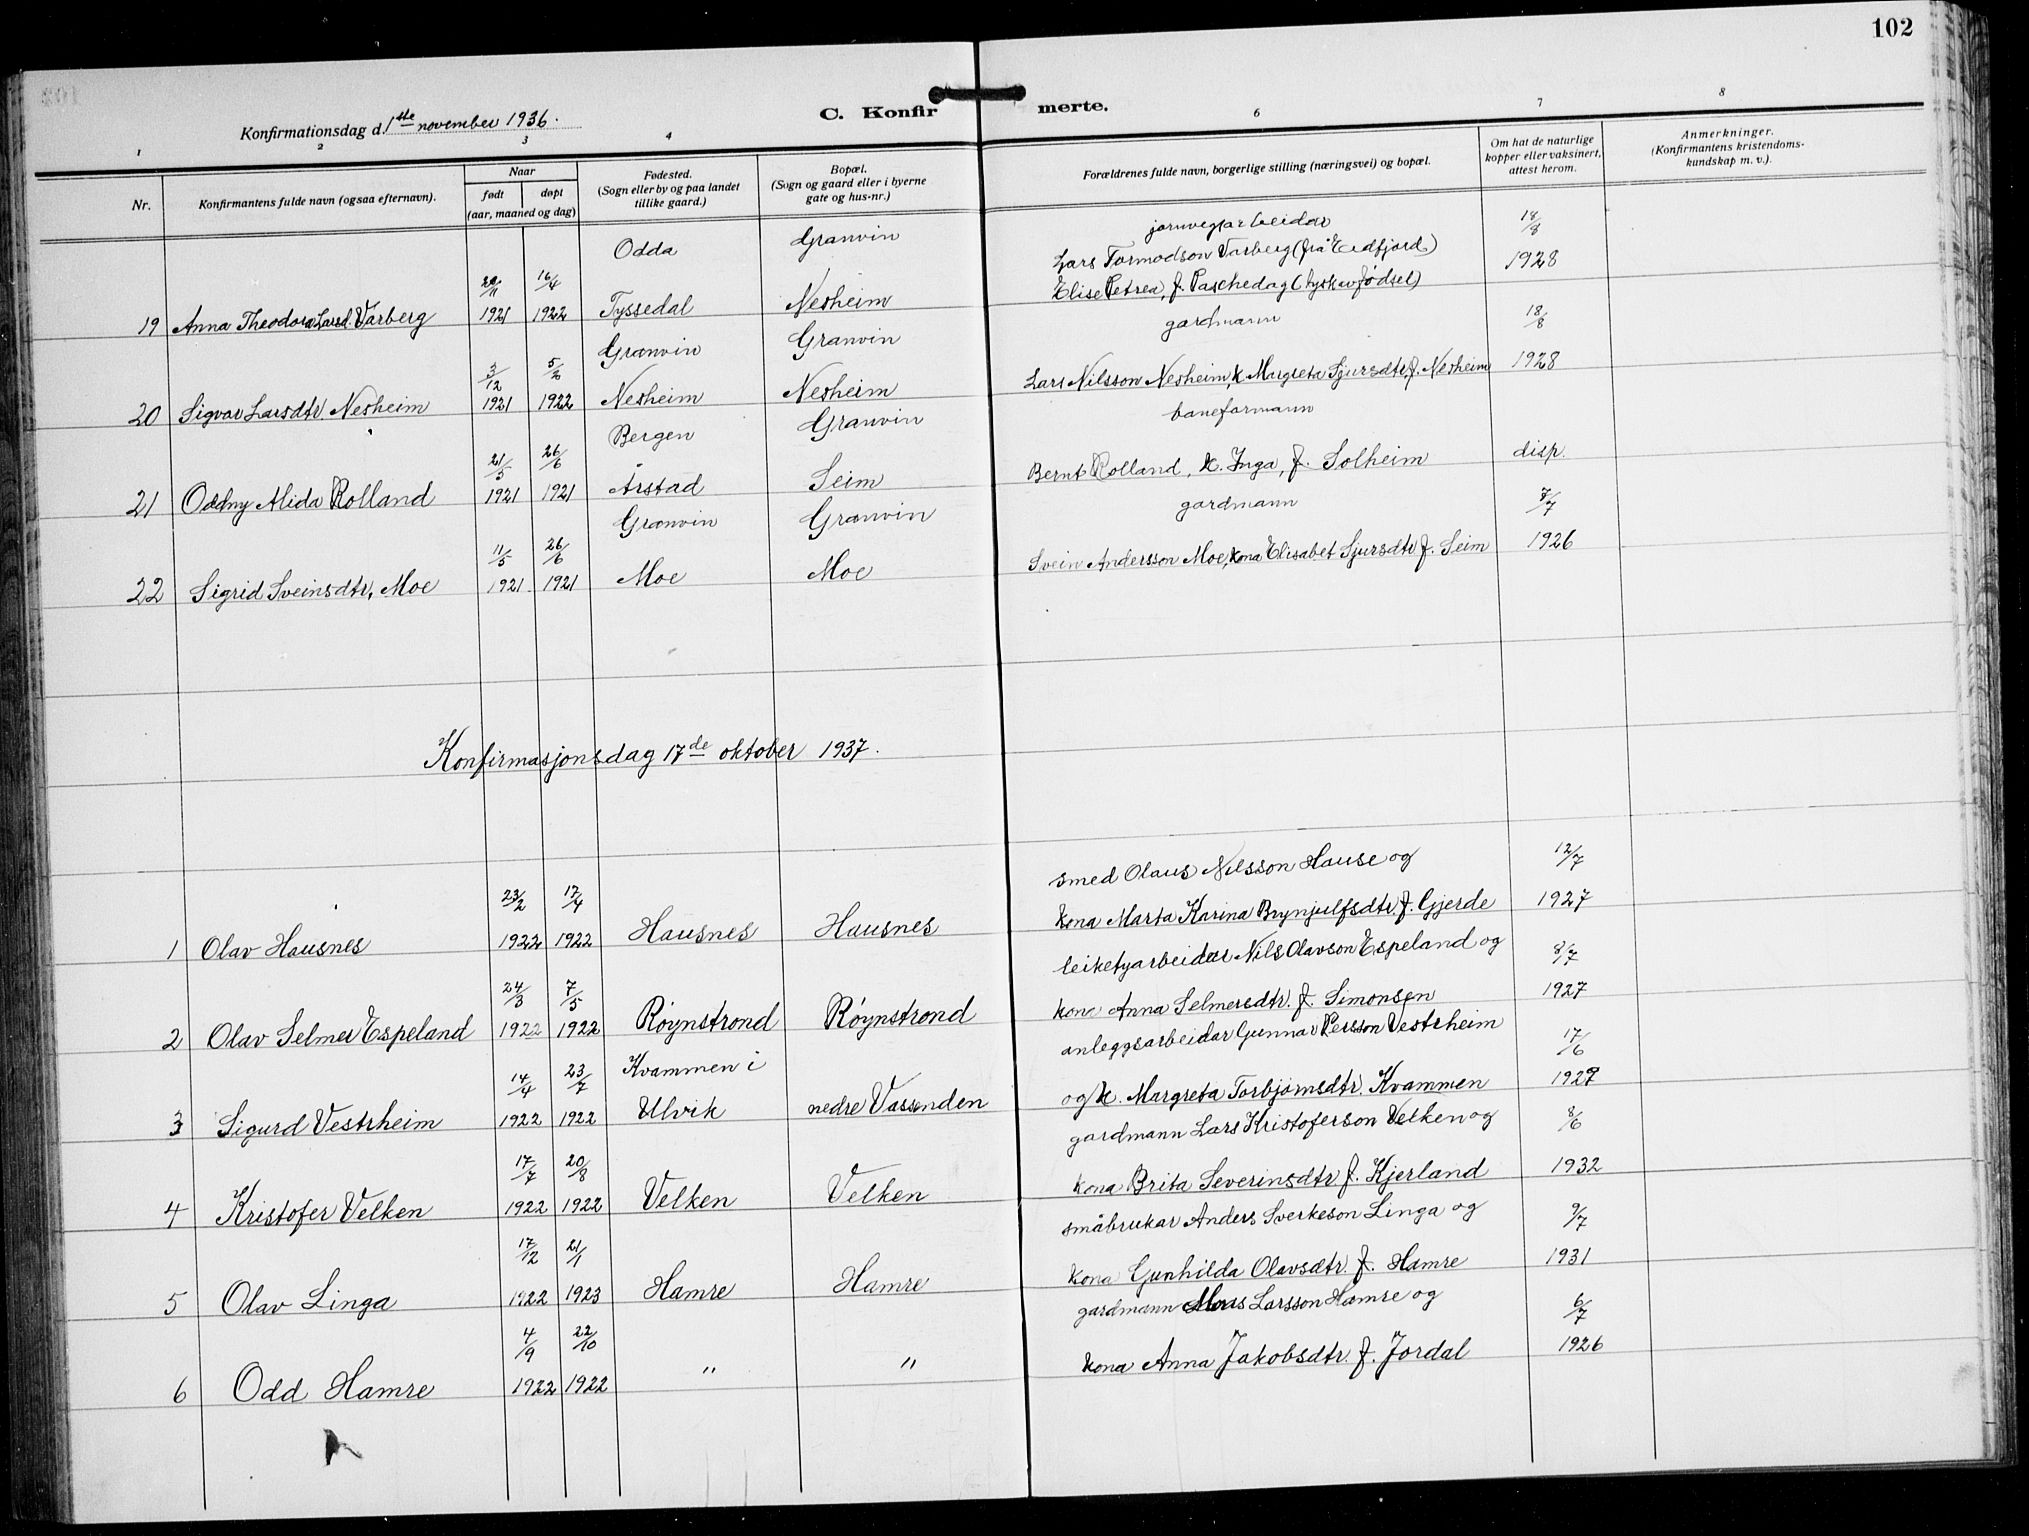 102
Konfirmationsdag d. 1ste november 1936.
C. Konfirmerte.
1 2 3 4 6 7 8
Nr.
Konfirmantens fulde navn (ogsaa efternavn).
Naar
født døpt
(aar, maaned og dag)
Fødested.
(Sogn eller by og paa landet
tillike gaard.)
Bopæl.
(Sogn og gaard eller i byerne
gate og hus-nr.)
Forældrenes fulde navn, borgerlige stilling (næringsvei) og bopæl.
Om hat de naturlige
kopper eller vaksinert,
attest herom.
Anmerkninger.
(Konfirmantens kristendoms-
kundskap m. v.).
Odda Granvin jarnvegsarbeidar 18/8
16/4 Lars Tormodson Varberg (frå Eidfjord) 1928
Elise Petrea, f. Paschedag (tysk av fødsel)
19 Anna Theodora Larsd. Varberg 1921 1922 Tyssedal Nesheim
Granvin Granvin gardmann 18/8
3/12 5/2 Lars Nilsson Nesheim, k. Margreta Sjursdtr. f. Nesheim 1928
20 Sigvor Larsdtr. Nesheim 1921 1922 Nesheim Nesheim
Bergen Granvin baneformann
21/5 26/6 Bernt Rolland, k. Inga, f. Solheim disp.
21 Oddny Alida Rolland 1921 1921 Årstad Seim
Granvin Granvin gardmann 7/7
11/5 26/6 Svein Andersson Moe, kona Elisabet Sjursdtr f. Seim 1926
22 Sigrid Sveinsdtr. Moe 1921 1921 Moe Moe
Konfirmasjonsdag 17de oktober 1937.
smed Olaus Nilsson Hause og 12/7
23/2 17/4 kona Marta Karina Brynjulfsdtr. f. Gjerde 1927
1 Olav Hausnes 1922 1922 Hausnes Hausnes
leiketyarbeidar Nils Olavson Espeland og 8/7
24/3 7/5 kona Anna Selmersdtr. f. Simonsen 1927
2 Olav Selmer Espeland 1922 1922 Røynstrond Røynstrond
anleggsarbeidar Gunnar Persson Vestrheim 17/6
14/4 23/7 Kvammen i og k. Margreta Torbjørnsdtr. Kvammen
3 Sigurd Vestrheim 1922 1922 Ulvik nedre Vassenden
gardmann Lars Kristoferson Velken og 8/6
17/7 20/8 kona Brita Severinsdtr f. Kjerland 1932
4 Kristofer Velken 1922 1922 Velken Velken
småbrukar Anders Sverkeson Linga og 9/7
17/12 21/1 kona Gunhilda Olavsdtr. f. Hamre 1931
5 Olav Linga 1922 1923 Hamre Hamre
gardmann Larsson Hamre og 6/7
4/9 22/10 kona Anna Jakobsdtr. f. Jordal 1926
6 Odd Hamre 1922 1922 " "